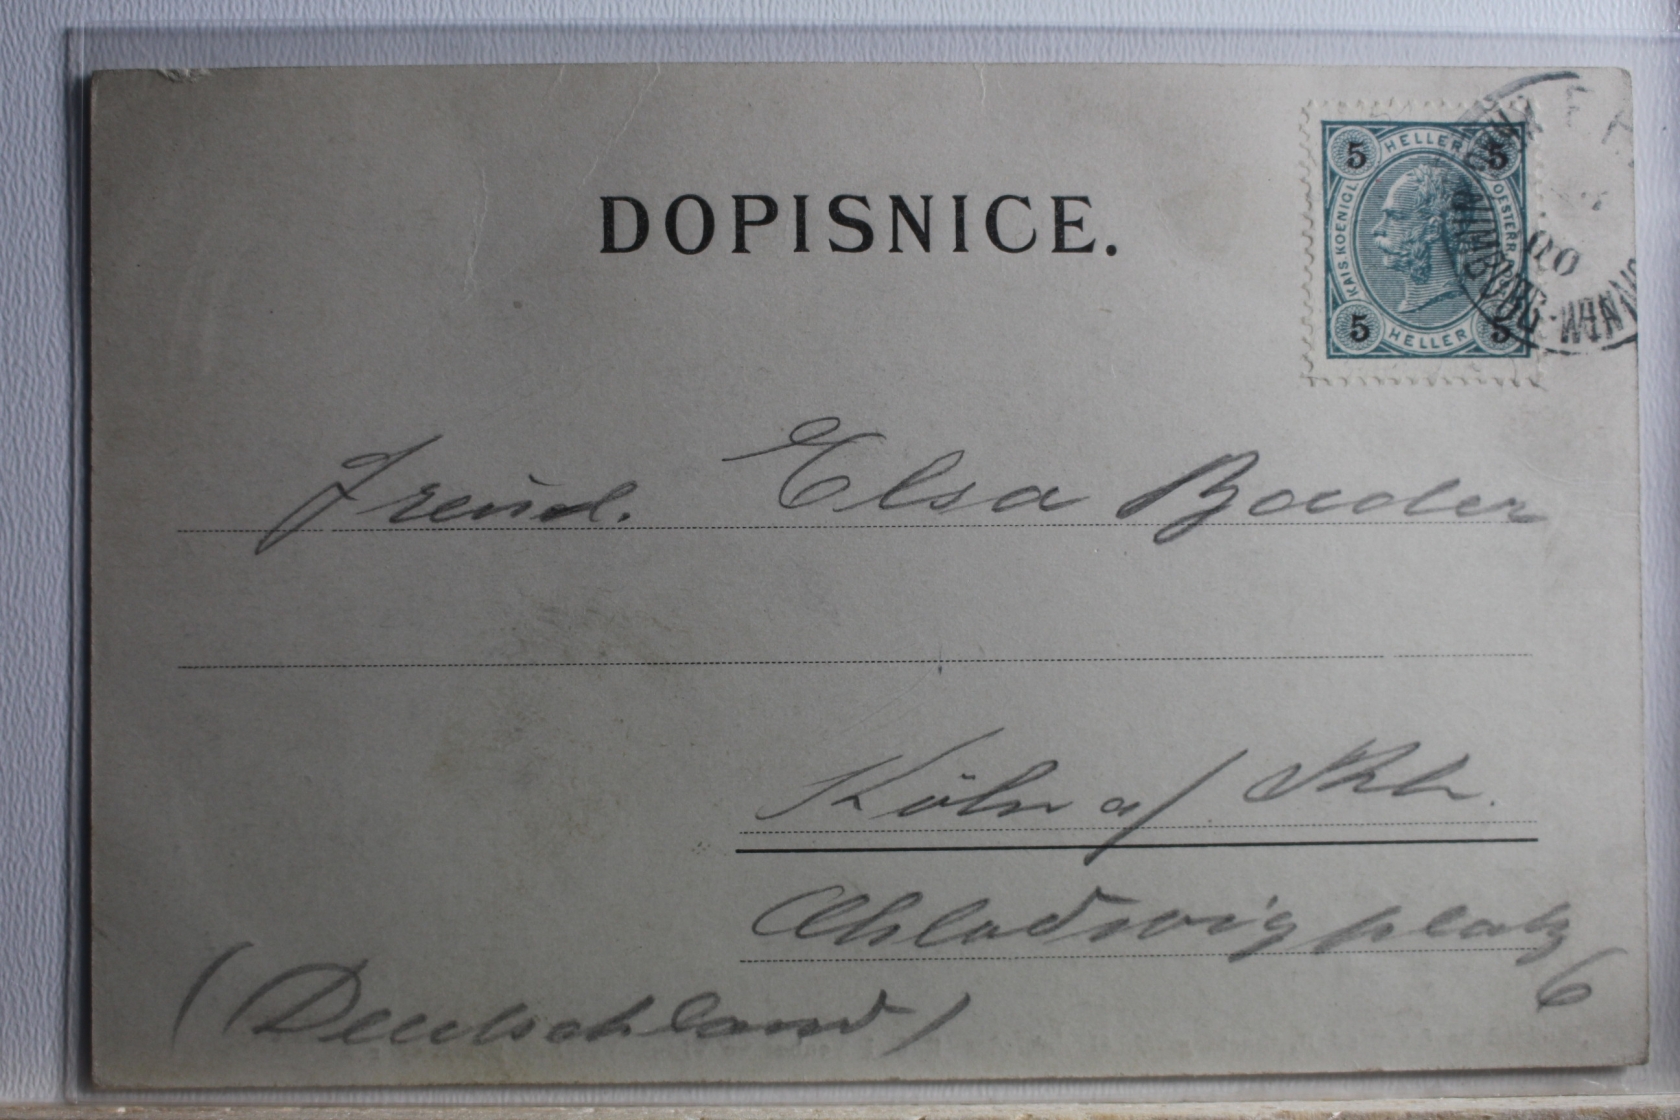 DOPISNICE.
5 HELLER 5
KAIS KOENIGL OESTERR
5 HELLER 5
00
Elsa Baeder
Köln a/ Rh.
Chlodwigplatz
6
(Deutschland)